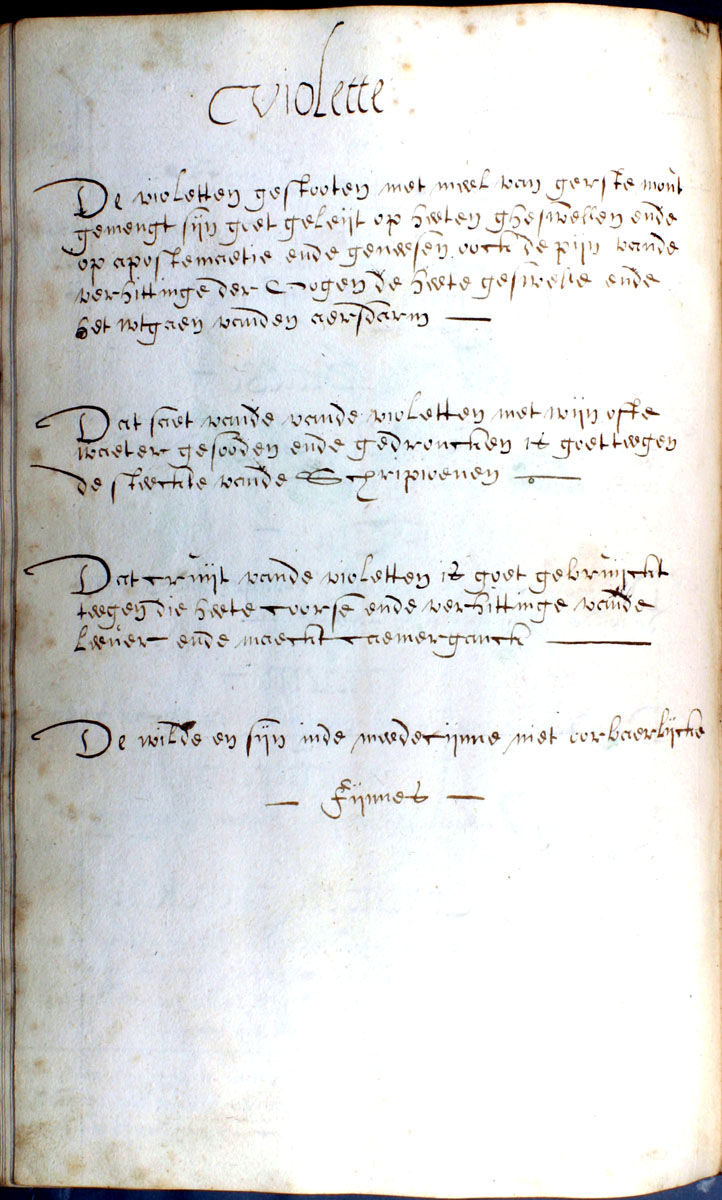 Violette
De violetten gestooten met meel van gerste mout
gemengt sijn goet geleijt op heeten gheswellen ende
op apostematie ende geneesen oock de pijn vande
verhittinge der Oogen de heete geswelle ende
het wtgaen vanden aersdarm —
Dat saet vande vande violetten met wijn ofte
waeter gesooden ende gedroncken is goet teegen
de steeckte vande Schripioenen —
Dat cruijt vande violetten is goet gebruijckt
teegen die heete coorse ende verhittinge vande
leever ende maeckt caemerganck —
De wilde en sijn inde meedecijnne niet oorbaerlijcke
— Fijnnes —